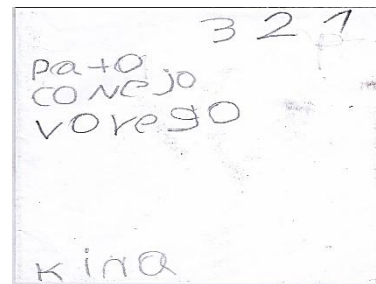 3 2 1
pato
coNejo
vorego
kina